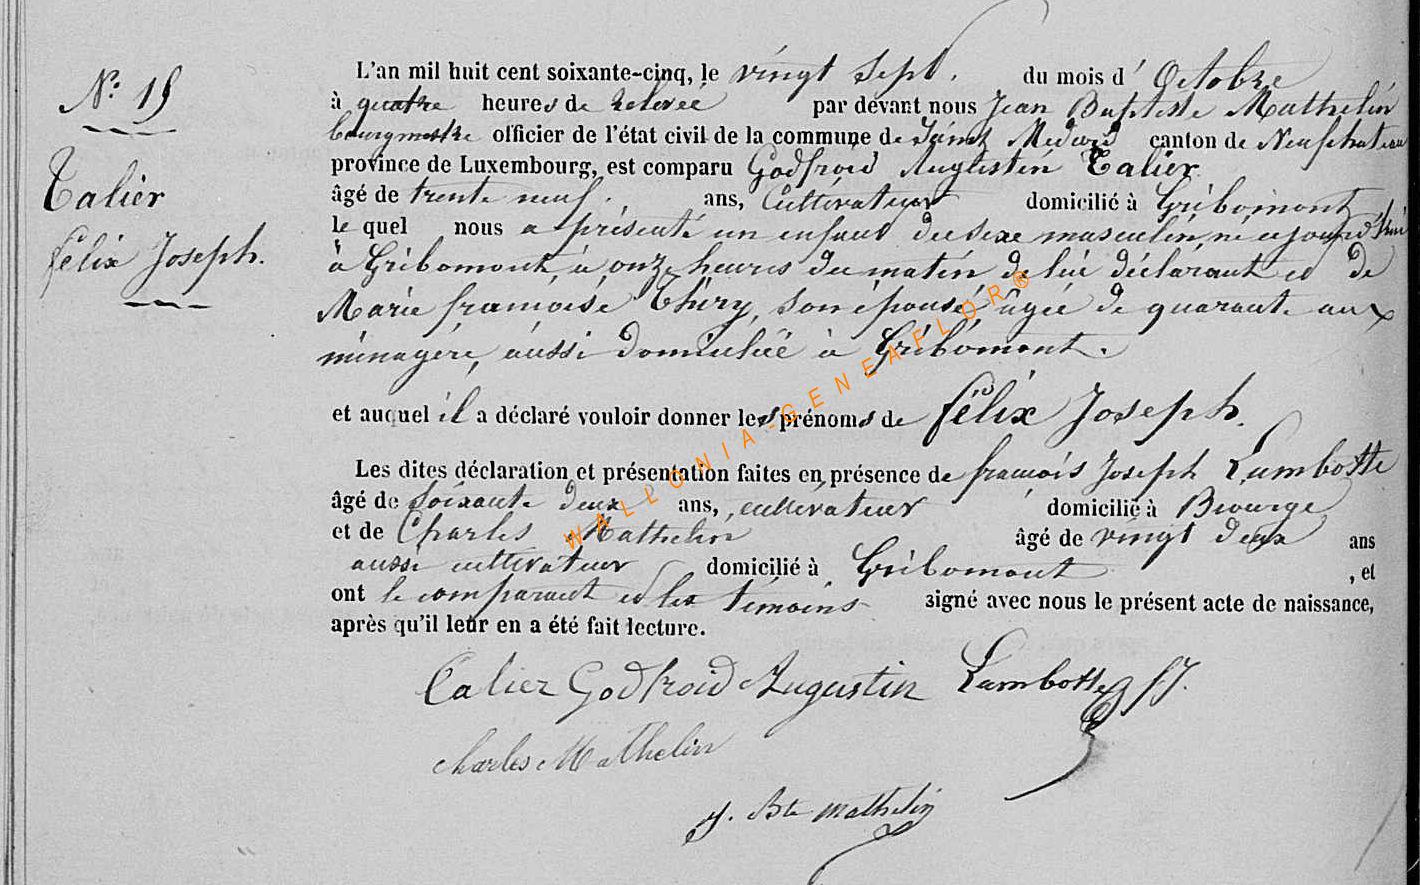 N° 19
Talier
félix Joseph.
L'an mil huit cent soixante-cinq, le vingt sept. du mois d' Octobre
à quatre heures de relevée par devant nous Jean Baptiste Mathelin
bourgmestre officier de l'état civil de la commune de Saint Médard canton de Neufchateau
province de Luxembourg, est comparu Godfroid Augustin Talier
âgé de trente neuf. ans, Cultivateur domicilié à Gribomont
le quel nous a présenté un enfant du sexe masculin, né ce jourd'hui
à Gribomont, à onze heures du matin de lui déclarant et de
Marie françoise Thiry, son épouse âgée de quarante ans
ménagère, aussi domiciliée à Gribomont.
et auquel il a déclaré vouloir donner les prénoms de félix Joseph.
Les dites déclaration et présentation faites en présence de francois Joseph Lambotte
âgé de soixante deux ans, cultivateur domicilié à
et de Charles Mathelin âgé de vingt deux ans
aussi cultivateur domicilié à Gribomont , et
ont le comparant et les témoins signé avec nous le présent acte de naissance,
après qu'il leur en a été fait lecture.
Talier Godfroid Augustin Lambotte fJ.
charles Mathelin
J. Bte mathelin
WALLONIA-GENEAFLOR®